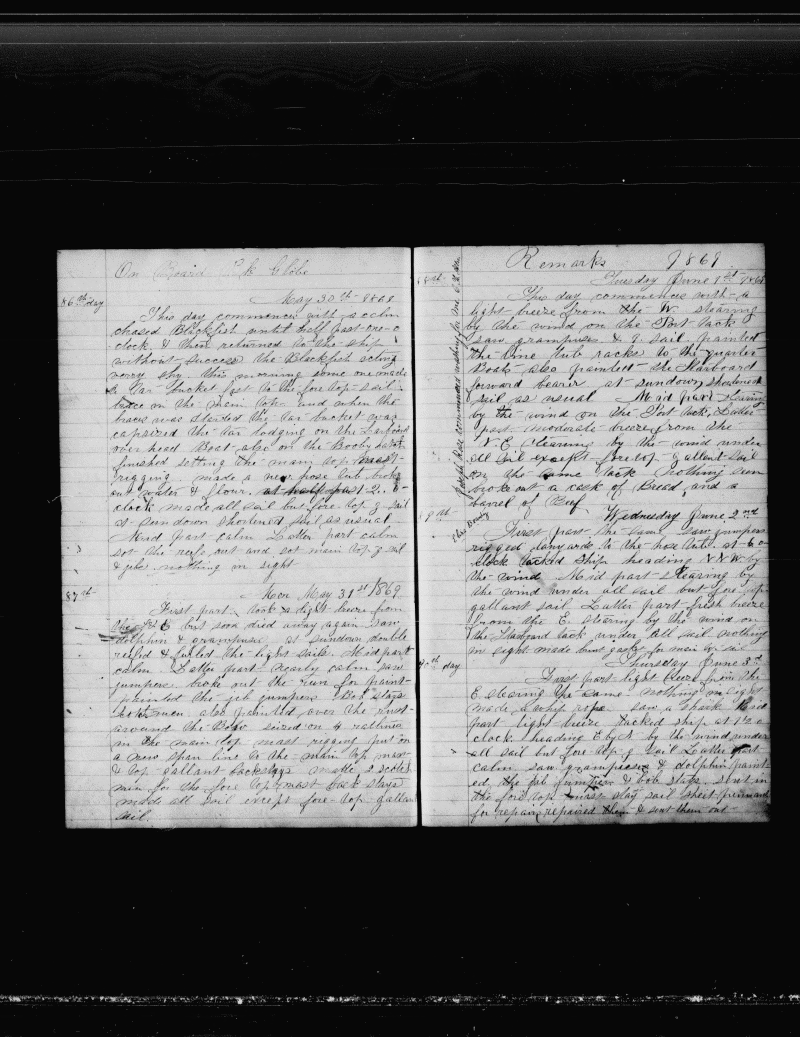 On Board Globe
May 30th 1869
86th day
This day commences with a calm
chased Blackfish until half past one o
clock & then returned to the ship
without success the Blackfish acting
very shy this morning some one made
a tar bucket fast to the fore top sail
brace in the main top and when the
braces was started the tar bucket was
capsized the tar lodging on the Larboard
over head Boat also on the Booby hatch
finished setting the main top mast
rigging made a new hose tub broke
out water & flour at half past 2 o
clock made all sail but fore top g sail
at sundown shortened sail as usual
Mid part calm Latter part calm
set the reefs out and set main top g sail
& jib nothing in sight
87th
Mon May 31st 1869
First part took a light breeze from
the E but soon died away again saw
dolphin & grampuses at sundown double
reefed & furled the light sails Mid part
calm Latter part nearly calm saw
jumpers broke out the run for paint
painted the jib jumpers Bob stays
also painted over the rust
around the Bow seized on 4 ratlins
in the main top mast rigging put on
a new span line to the main top mast
& top gallant backstays made 2 scotch
men for the fore top mast back stays
made all sail except fore top gallant
sail.
Remarks 1869
Thursday June 1st 1869
This day commences with a
light breeze from the W. stearing
by the wind on the Port tack
saw grampuses & g sail painted
the line tub racks to the quarter
Boats also painted the Starboard
forward bearer at sundown shortened
sail as usual Mid part stearing
by the wind on the Port tack Latter
part moderate breeze from the
N E stearing by the wind under
all sail except fore top gallant sail
on the same tack nothing seen
broke out a cask of Bread and a
barrel of Beef
89th
Wednesday June 2nd
First part the same saw jumpers
rigged lanyards to the hose tub at 6 o
clock tacked ship heading N N W by
the wind Mid part stearing by
the wind under all sail but fore top
gallant sail Latter part fresh breeze
from the E. stearing by the wind on
the Starboard tack under all sail nothing
in sight made bunt gasket for main top sail
90th day
Thursday June 3d
First part light breeze from the
E stearing the same nothing in sight
made a whip rope saw a shark Mid
part light breeze tacked ship at 1 o
clock heading E by N by the wind under
all sail but fore top g sail Latter part
calm saw grampuses & dolphin paint
ed the jib jumpers & bob stays sent in
the fore top mast stay sail sheet pennants
for repair, repaired them & sent them out